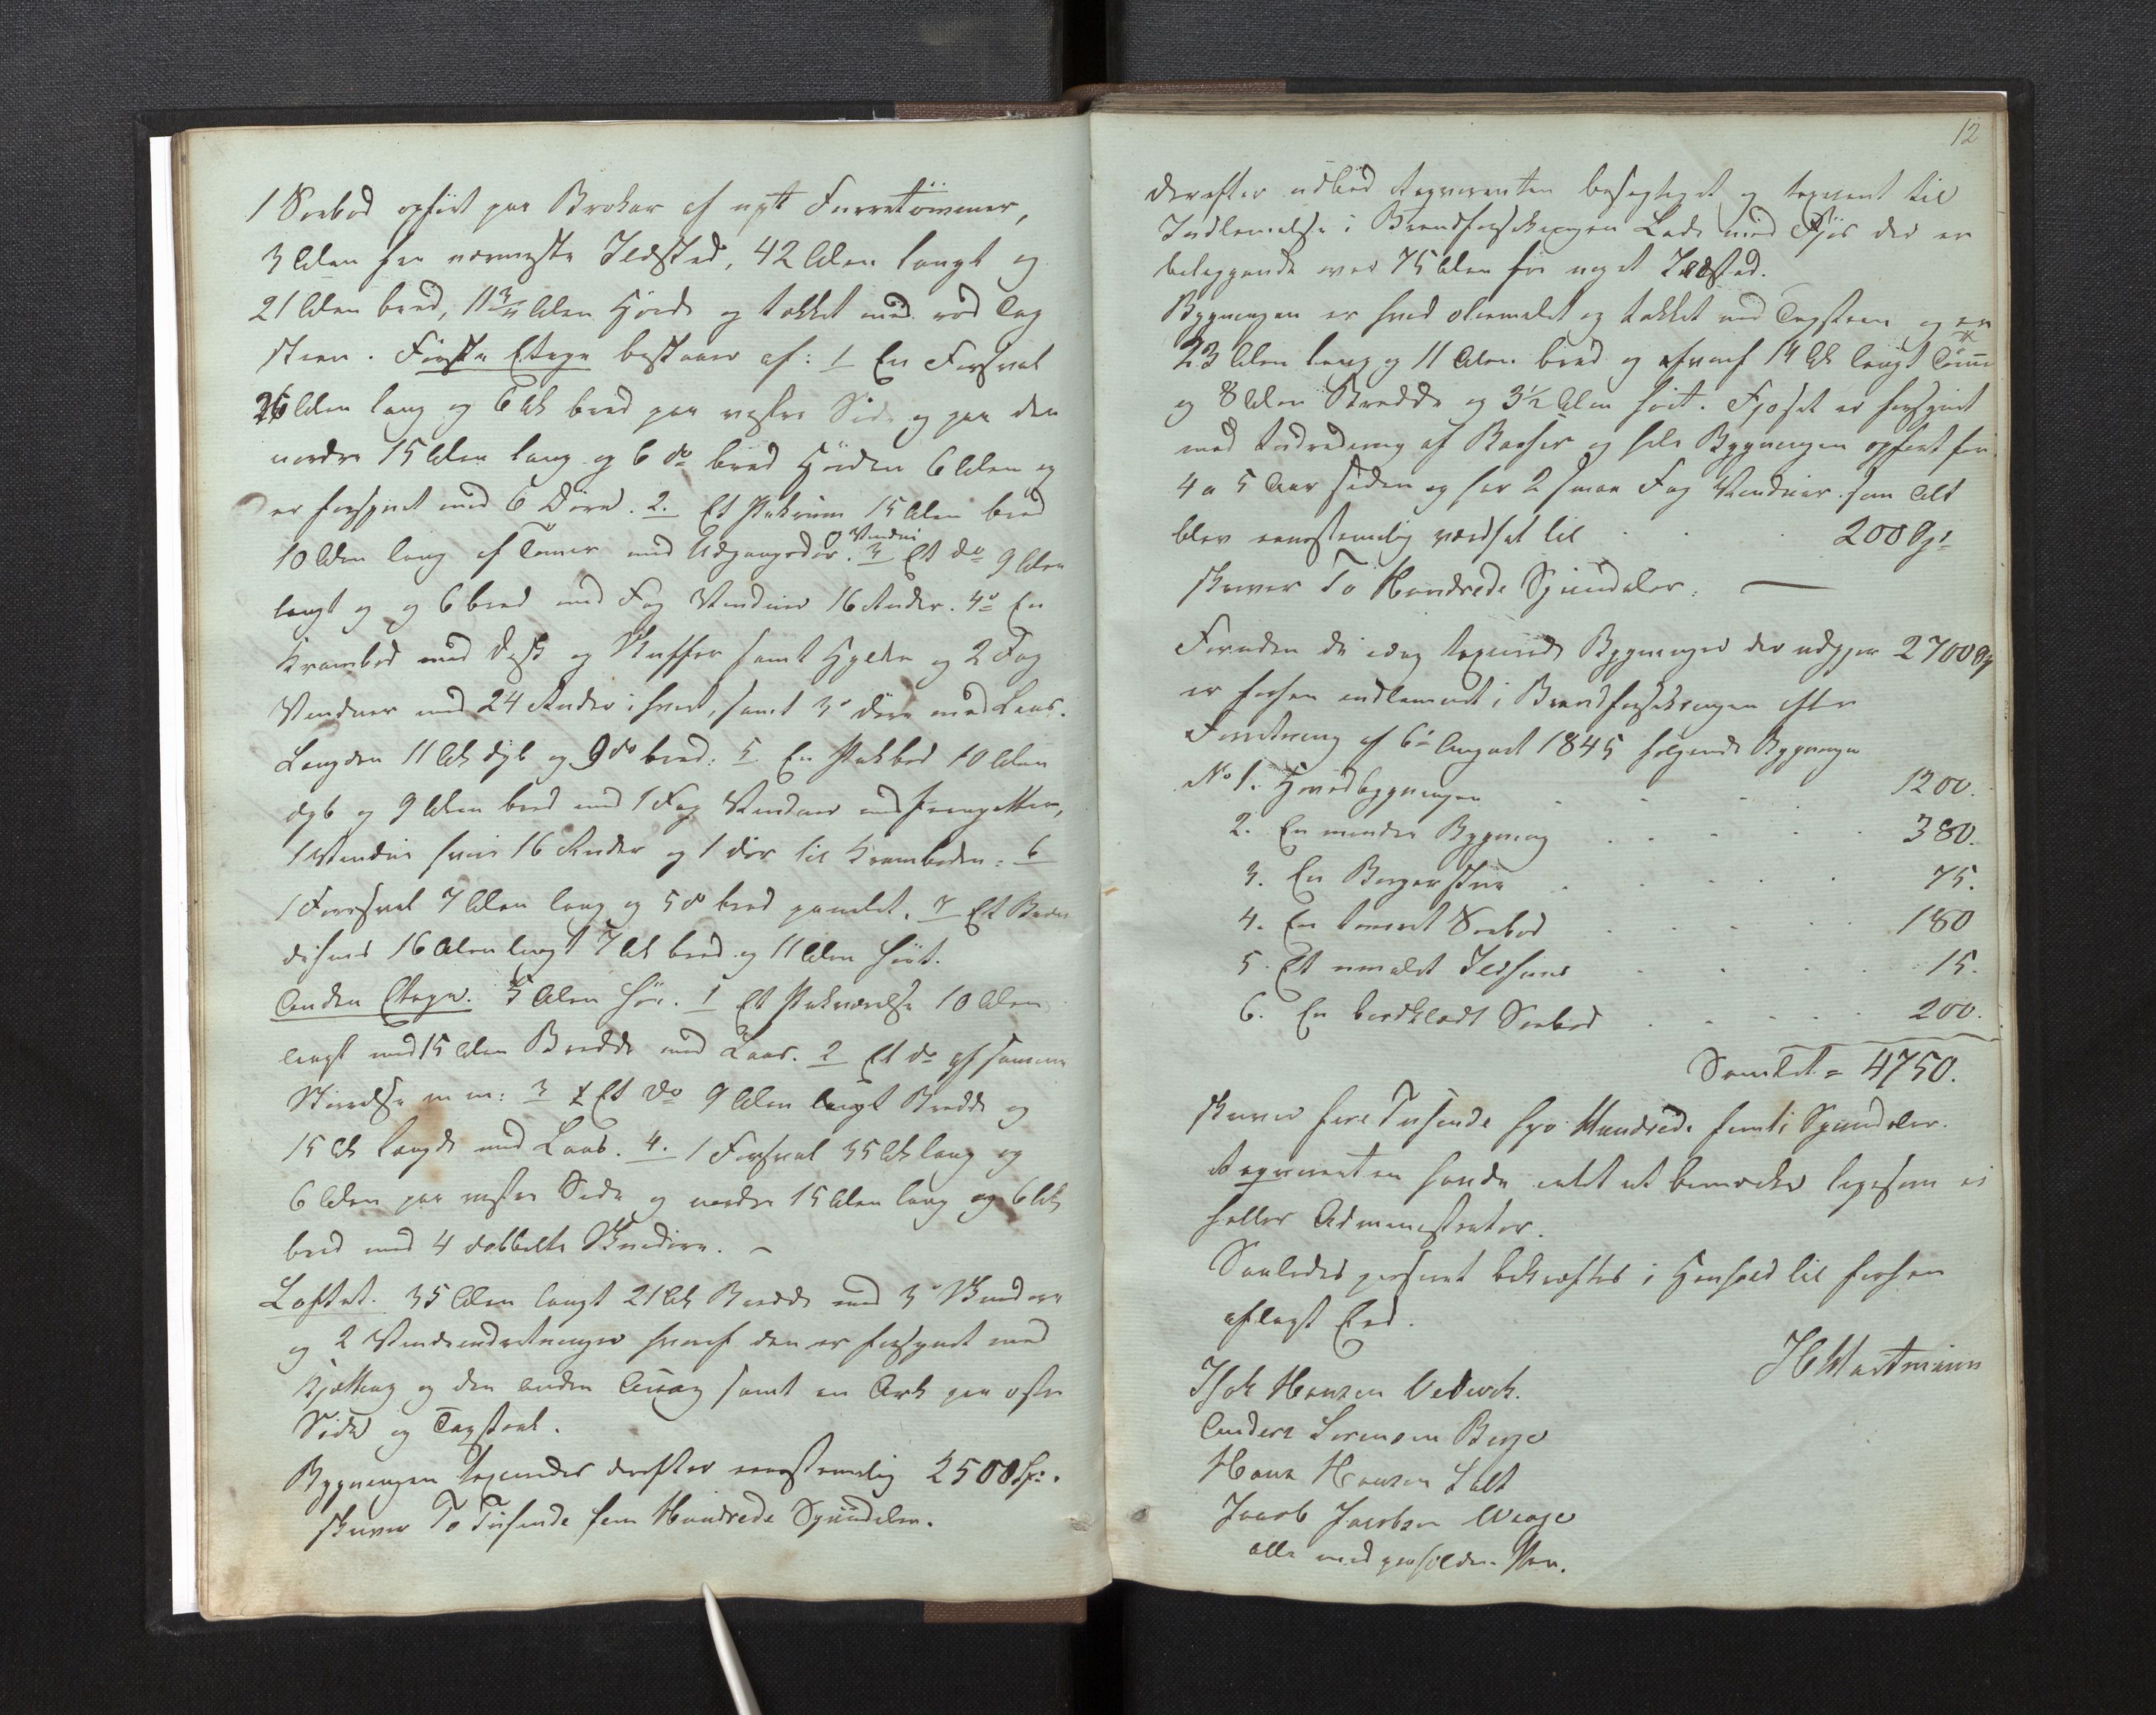 1 Søebod opført paa Brokar af nytt Furretömmer,
3 Alen fra nærmeste Ildsted, 42 Alen langt og
21 Alen bred, 11 3/4 Alen Høide og takket med rød Tag
steen. Første Etage bestaaer af: 1 En Forsval
26 Alen lang og 6 Al bred paa vestre Side og paa den
nordre 15 Alen lang og 6 do bred Høiden 6 Alen og
er forsynet med 6 Döre. 2. Et Pakrum 15 Alen bred
10 Alen lang af Tømer med Udgangsdör og Vindue. 3 Et do 9 Alen
langt og og 6 bred med Fag Vinduer 16 Ruder. 4o En
Krambod med Disk og Skuffer samt Hylder og 2 Fag
Vinduer med 24 Ruder i hvert, samt 3 döre med Laas.
Længden 11 Al dyb og 9 do bred: 5. En Pakbod 10 Alen
dyb og 9 Alen bred med 1 Fag Vinduer med
1 Vindue hvori 16 Ruder og 1 dör til Kramboden: 6
1 Forsval 7 Alen lang og 5 do bred panelet. 7 Et
16 Alen langt 7 Al bred og 11 Alen høit.
Anden Etage. 5 Alen høi. 1 Et Pakværelse 10 Alen
langt med 15 Alen Bredde med Laas. 2 Et do af samme
Størrelse m m: 3 Et do 9 Alen langt Bredde og
15 Al Længde med Laas. 4. 1 Forsval 35 Al lang og
6 Alen paa vestre Side og nordre 15 Alen lang og 6 Al
bred med 4 dobbelte
Loftet. 35 Alen langt 21 Al Bredde med 3
og 2 Vindeindretninger hvoraf den er forsynet med
Kjetting og den anden Toug samt en Ark paa østre
Side og Tagstoel.
Bygningen taxeredes derefter eenstemmig 2500 Sp:
skriver To Tusende fem Hundrede Speciedaler.
12
derefter udbød Reqvirenten besigtiget og taxeret til
Indlemmelse i Brandforsikringen Lade med Fjös der er
beliggende over 75 Alen fra noget Ildsted.
Bygningen er hvid oliemalet og takket med Tagsteen og er
23 Alen lang og 11 Alen bred og hvoraf 14 Al langt Tömer
og 8 Alen Bredde og 3 1/2 Alen høit. Fjøset er forsynet
med Indredning af Baaser og hele Bygningen opført for
4 a 5 Aar siden og har 2 smaa Fag Vinduer som Alt
blev eenstemmig værdsat til 200 Sp
skriver To Hundrede Speciedaler.
Foruden de idag taxerede Bygninger der udgjør 2700 Sp
er forhen indlemmet i Brandforsikringen efter
Forretning af 6te August 1845 følgende Bygninger
No 1. Hovedbygningen 1200.
2. En mindre Bygning 380.
3. En Borgerstue 75.
4. En tømret Søebod 180
5. Et umalet Ildhuus 15.
6. En bordklædt Søebod 200.
Samlet = 4750.
skriver fire Tusende syv Hundrede femti Speciedaler.
Reqvirenten havde intet at bemærke ligesom ei
heller Administrator.
Saaledes passeret bekræftes i Henhold til forhen
aflagt Eed.
H Hartmann
Isak Hansen
Anders Sørensen Berge
Hans Hansen
Jacob Jacobsen
alle med paaholden Pen.